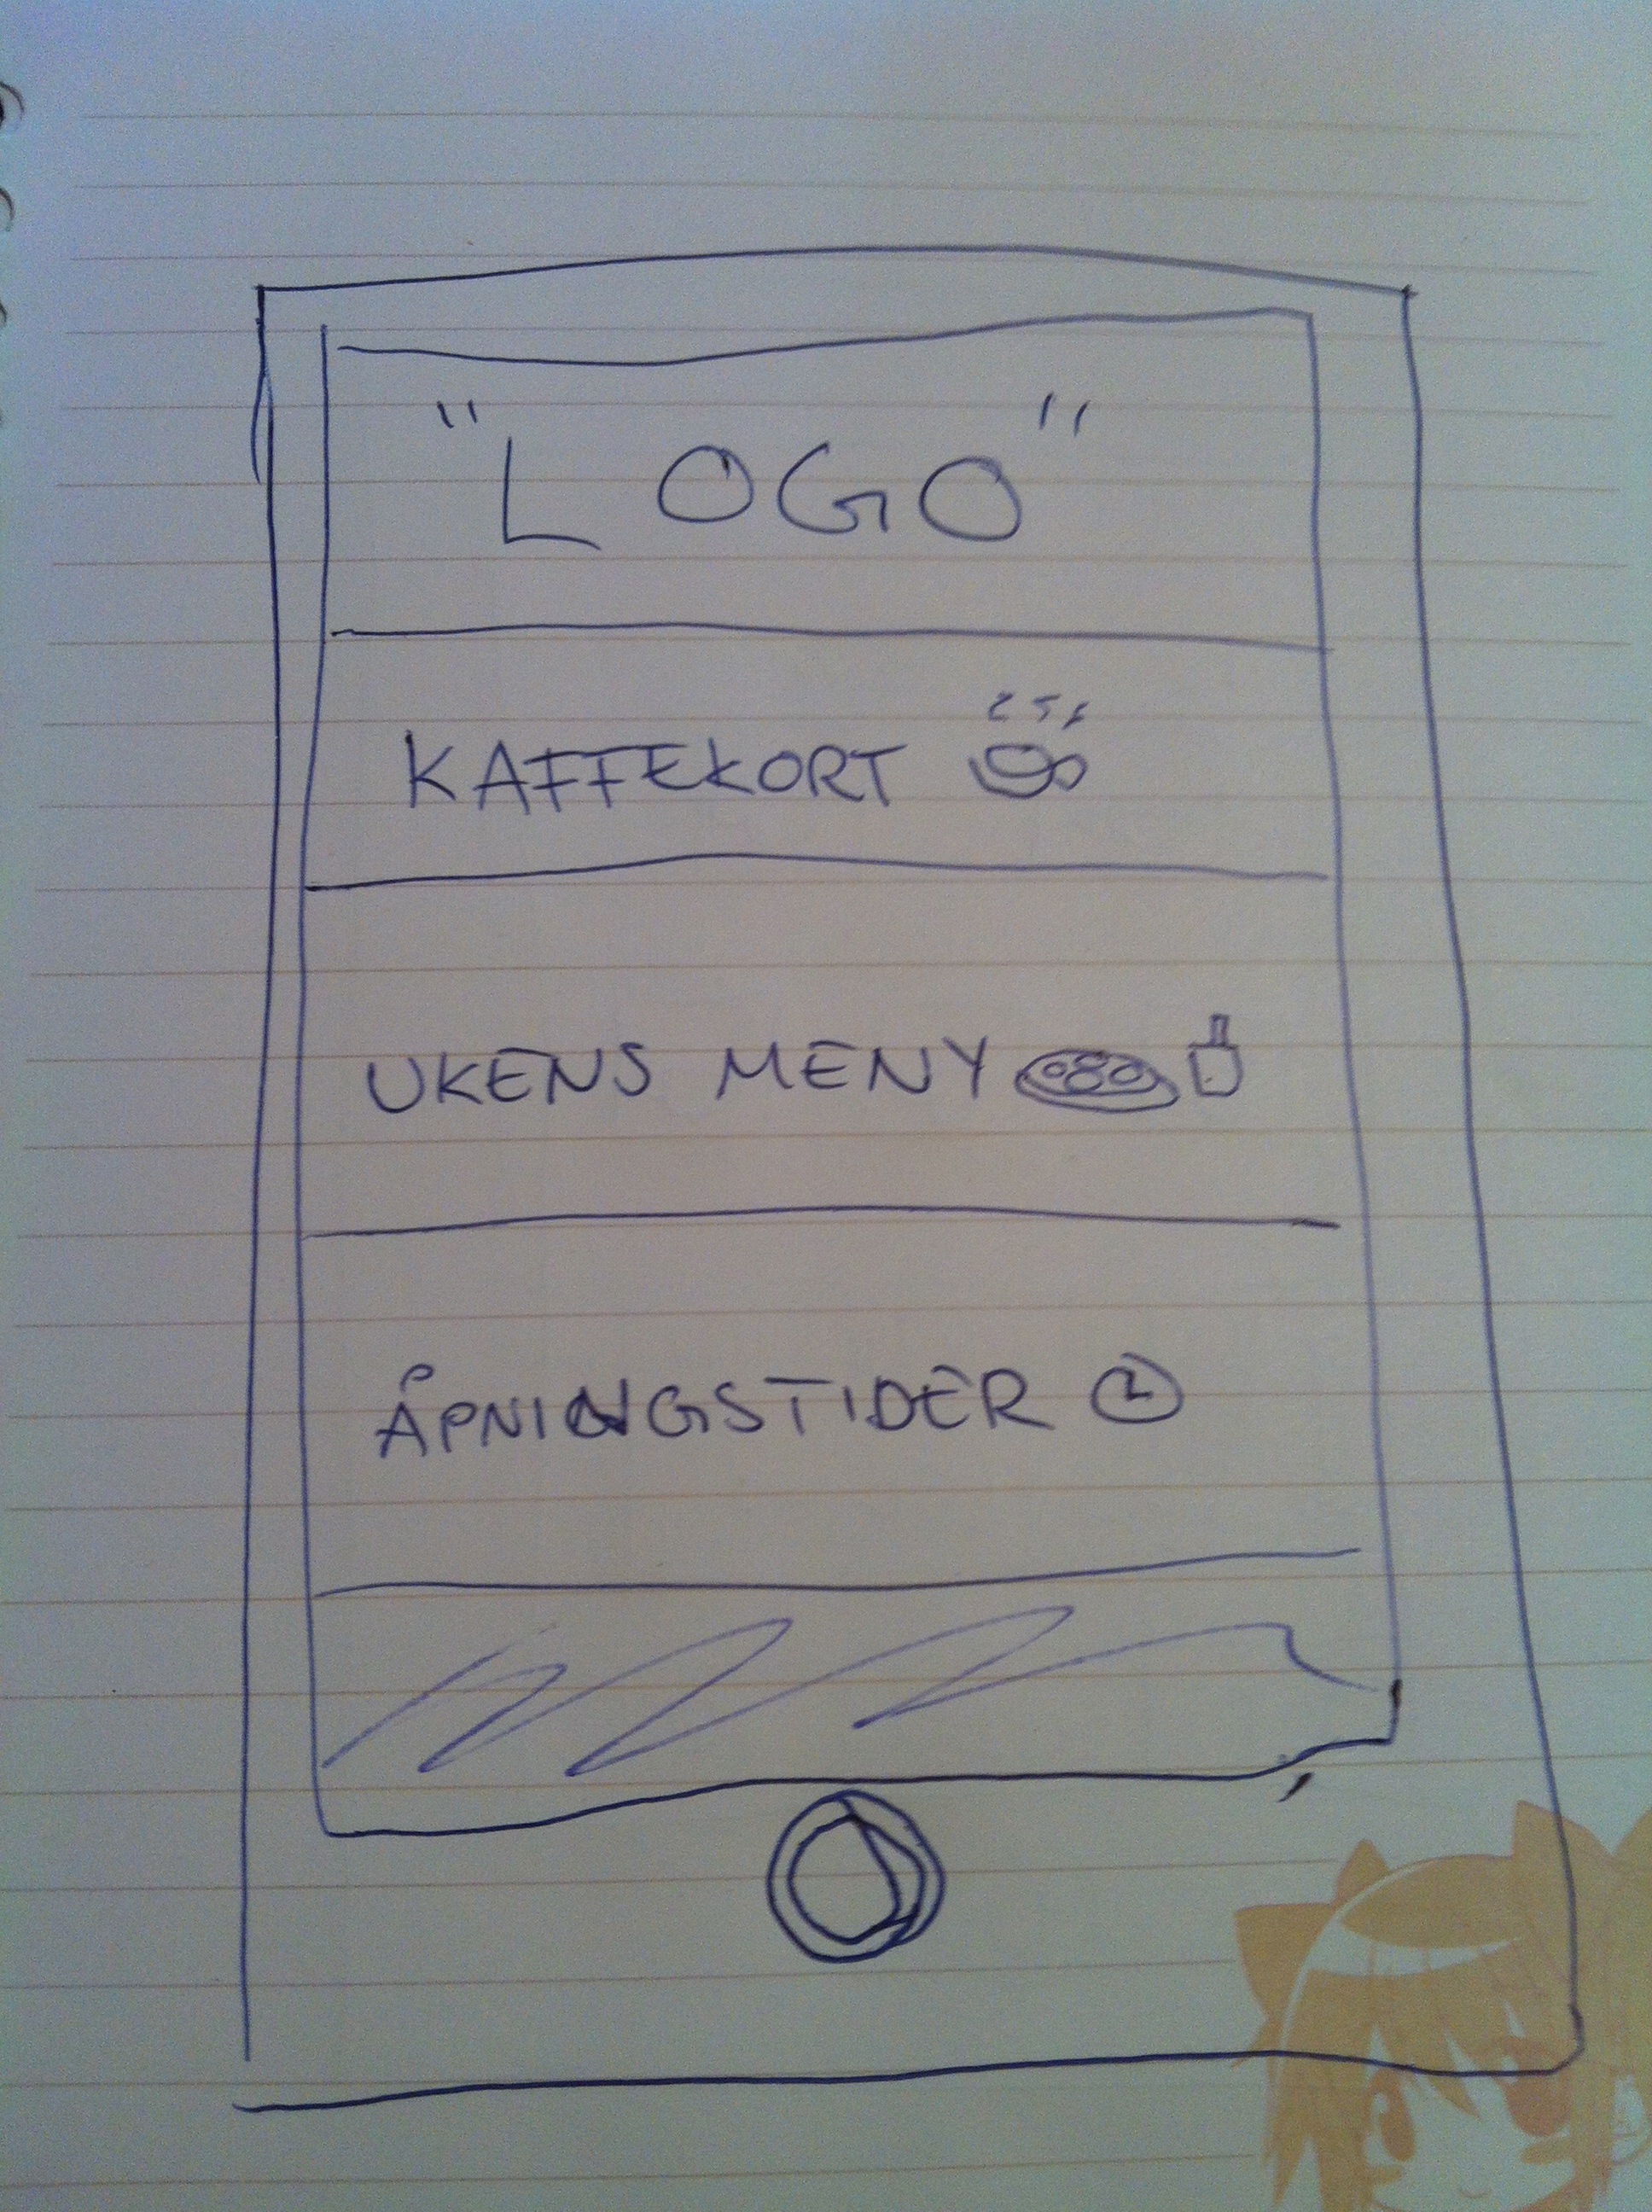 "LOGO"
KAFFEKORT
UKENS MENY
ÅPNINGSTIDER